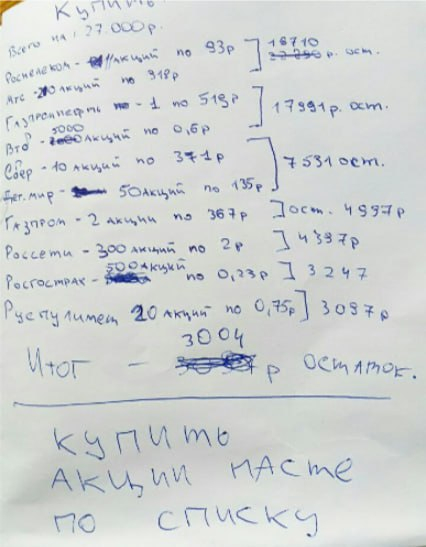 КУПИТЬ
Всего на: 27.000р.
Ростелеком - 11 акций по 93р ] 18710 р. ост.
Мтс - 20 акций по 318р
Газпромнефть - 1 по 519р ] 17991р. ост.
Втб 5000 акций по 0,6р
Сбер - 10 акций по 371р ] 7531 ост.
Дет.мир - 50 акций по 135р
Газпром - 2 акции по 367р ] ост. 4997р
Россети - 300 акций по 2р ] 4397р
Росгострах - 500 акций по 0,23р ] 3247
Руспулимет 20 акций по 0,75р ] 3097р
Итог - 3004 р остаток.
КУПИТЬ
АКЦИИ НАСТЕ
ПО СПИСКУ